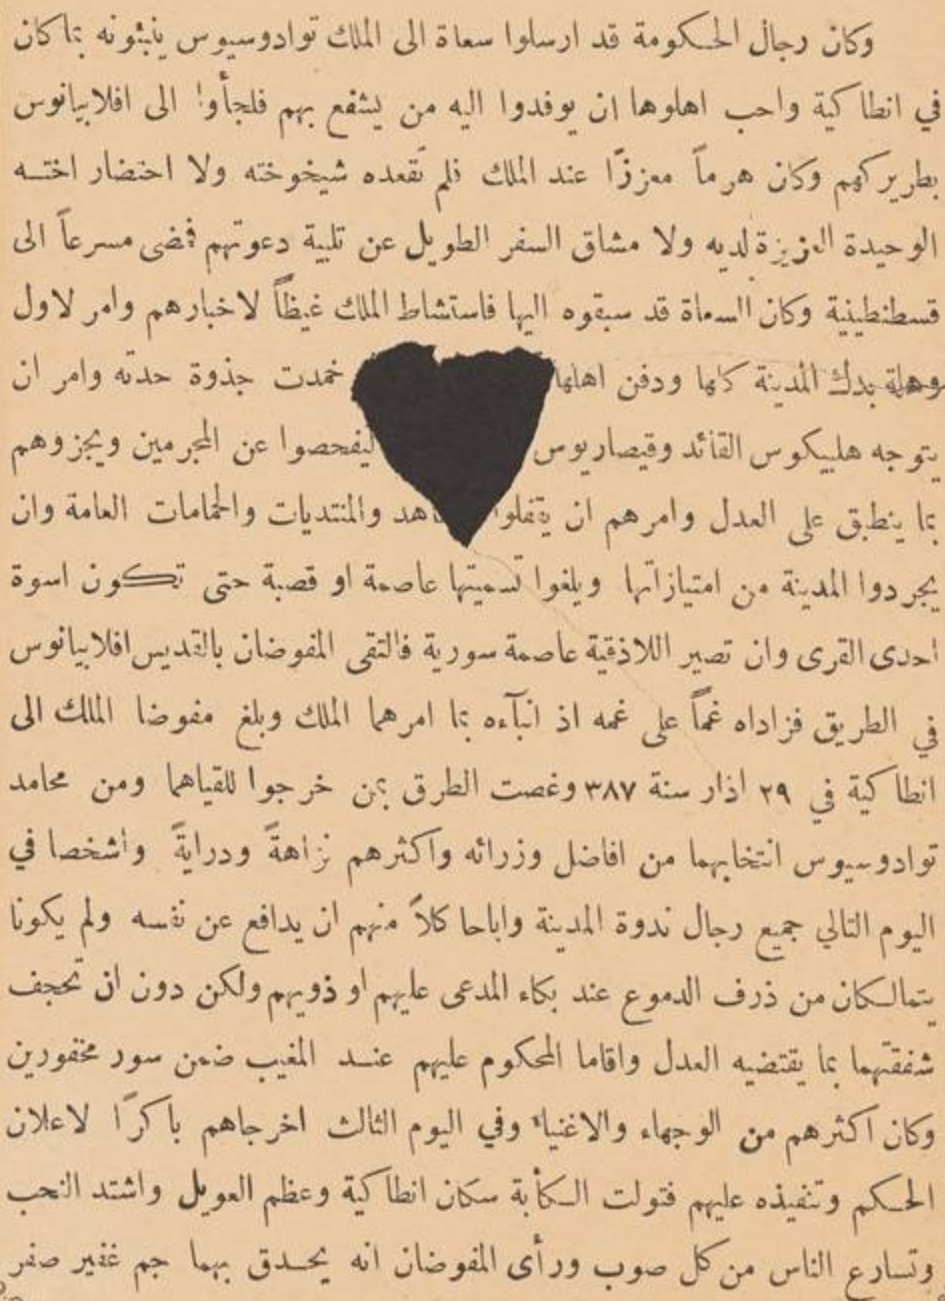 وكان رجال الحكومة قد ارسلوا سعاة الى الملك توادوسيوس ينبئونه بما كان
في انطاكية واحب اهلوها ان يوفدوا اليه من يشفع بهم فلجأوا الى افلابيانوس
بطريركهم وكان هرماً معززًا عند الملك فلم تقعده شيخوخته ولا احتضار اخته
الوحيدة العزيزة لديه ولا مشاق السفر الطويل عن تلبية دعوتهم فمضى مسرعاً الى
قسطنطينية وكان السعاة قد سبقوه اليها فاستشاط الملك غيظاً لاخبارهم وامر لاول
وهلة بدك المدينة كلها ودفن اهلها خمدت جذوة حدته وامر ان
يتوجه هلبيكوس القائد وقيصاريوس ليفحصوا عن المجرمين ويجزوهم
بما ينطبق على العدل وامرهم ان يقفلوا والمنتديات والحمامات العامة وان
يجردوا المدينة من امتيازاتها ويلغوا تسميتها عاصمة او قصبة حتى تكون اسوة
احدى القرى وان تصير اللاذقية عاصمة سورية فالتقى المفوضان بالقديس افلابيانوس
في الطريق فزاداه غماً على غمه اذ انبآءه بما امرهما الملك وبلغ مفوضا الملك الى
انطاكية في ٢٩ اذار سنة ٣٨٧ وغصت الطرق بمن خرجوا للقياهما ومن محامد
توادوسيوس انتخابهما من افاضل وزرائه واكثرهم نزاهةً ودرايةً واشخصا في
اليوم التالي جميع رجال ندوة المدينة واباحا كلاً منهم ان يدافع عن نفسه ولم يكونا
يتمالكان من ذرف الدموع عند بكاء المدعى عليهم او ذويهم ولكن دون ان تحجف
شفقتهما بما يقتضيه العدل واقاما المحكوم عليهم عند المغيب ضمن سور مخفورين
وكان اكثرهم من الوجهاء والاغنياء وفي اليوم الثالث اخرجاهم باكرًا لاعلان
الحكم وتنفيذه عليهم فتولت الكأبة سكان انطاكية وعظم العويل واشتد النحب
وتسارع الناس من كل صوب ورأى المفوضان انه يحدق بهما جم غفير صفر